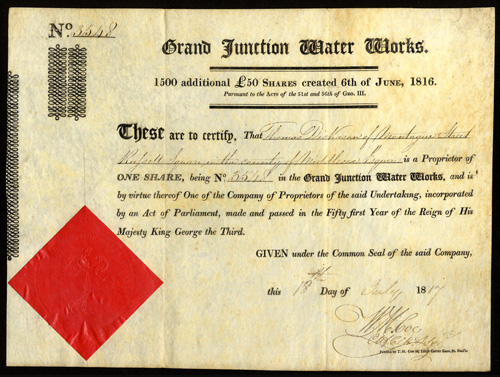 No. 3548
Grand Junction Water Works.
1500 additional £50 SHARES created 6th of JUNE, 1816.
Pursuant to the Acts of the 51st and 56th of Geo. III.
These are to certify, That Thomas Dickason of Montague Street
Russell Square in the county of Middlesex Esquire is a Proprietor of
ONE SHARE, being No. 3548 in the Grand Junction Water Works, and is
by virtue thereof One of the Company of Proprietors of the said Undertaking, incorporated
by an Act of Parliament, made and passed in the Fifty first Year of the Reign of His
Majesty King George the Third.
GIVEN under the Common Seal of the said Company,
this 18th Day of July 1817
W. M. Coe